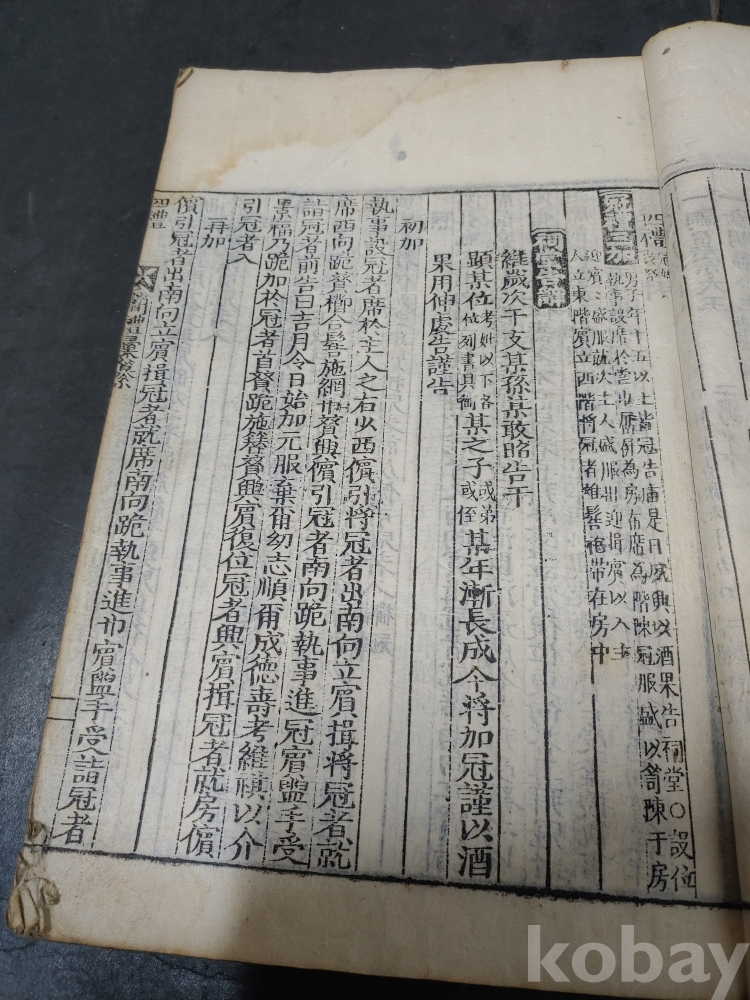 四禮 冠婚喪祭
冠禮三加
男子年十五以上皆冠告廟是日夙興以酒果告祠堂○設位
執事設席於堂東帷屏為房布席為階陳冠服盛以笥陳于房
迎賓賓盛服就次主人盛服出迎揖賓以入主
人立東階賓立西階將冠者雙髻袍帶在房中
祠堂告辭
維歲次干支某孫某敢昭告于
顯某位 考妣以下各位列書具銜 某之子 或弟或侄 某年漸長成今將加冠謹以酒
果用伸虔告謹告
初加
執事設冠者席於主人之右少西儐引將冠者出南向立賓揖將冠者就
席西向跪贊櫛合髻施網巾贊興儐引冠者南向跪執事進冠賓盥手受
詣冠者前告曰吉月令日始加元服棄爾幼志順爾成德壽考維祺以介
景福乃跪加於冠者首贊跪施簪贊興賓復位冠者興賓揖冠者就房儐
引冠者入
再加
儐引冠者出南向立賓揖冠者就席南向跪執事進巾賓盥手受詣冠者
四禮
kobay